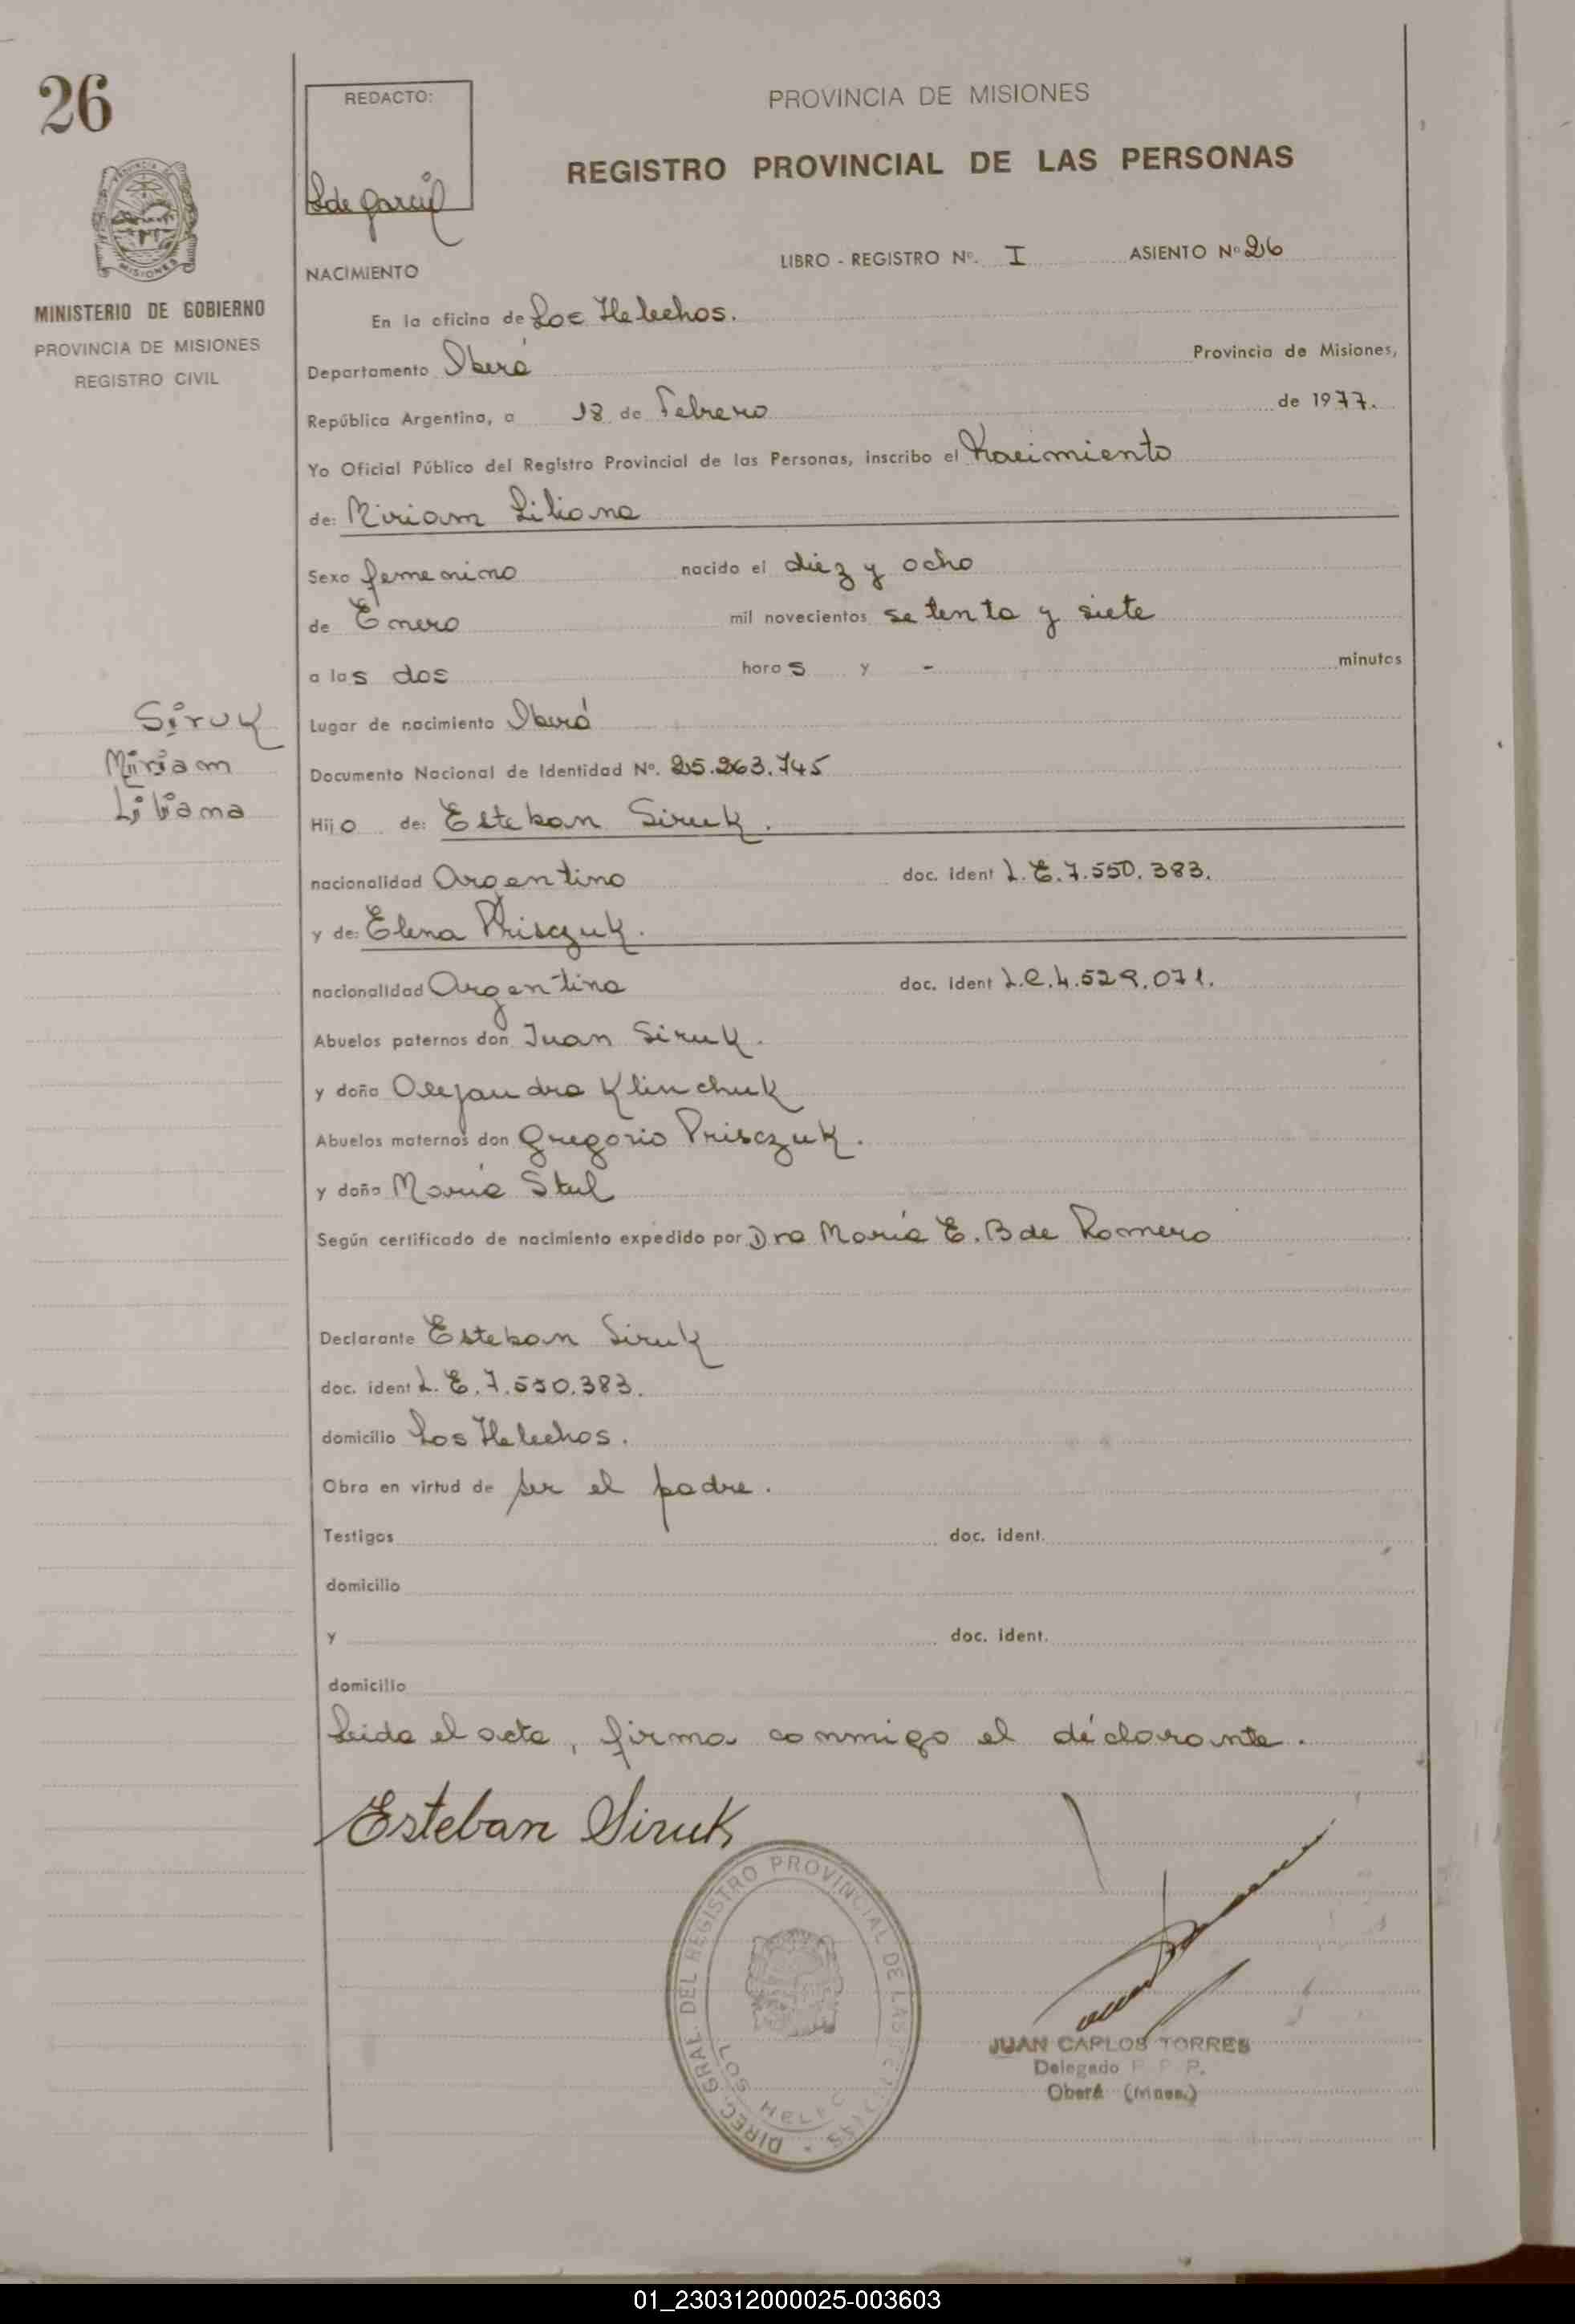 26
REDACTO:
PROVINCIA DE MISIONES
REGISTRO PROVINCIAL DE LAS PERSONAS
MINISTERIO DE GOBIERNO
PROVINCIA DE MISIONES
REGISTRO CIVIL
LIBRO - REGISTRO Nº. I ASIENTO Nº 26
NACIMIENTO
En la oficina de Los Helechos.
Departamento Oberá Provincia de Misiones,
República Argentina, a 18 de Febrero de 1977.
Yo Oficial Público del Registro Provincial de las Personas, inscribo el Nacimiento
de: Miriam Liliana
Sexo femenino nacido el diez y ocho
de Enero mil novecientos setenta y siete
a las dos horas y - minutos
Siruk
Miriam
Liliana
Lugar de nacimiento Oberá
Documento Nacional de Identidad Nº. 25.263.745
Hijo de: Esteban Siruk.
nacionalidad Argentino doc. ident L.E.7.550.383.
y de: Elena Prisczuk.
nacionalidad Argentina doc. ident L.C.4.529.071.
Abuelos paternos don Juan Siruk.
y doña Alejandra Klinchuk
Abuelos maternos don Gregorio Prisczuk.
y doña María Stul
Según certificado de nacimiento expedido por Dra María E. B de Romero
Declarante Esteban Siruk
doc. ident L.E.7.550.383.
domicilio Los Helechos.
Obra en virtud de ser el padre.
Testigos doc. ident.
domicilio
y doc. ident.
domicilio
Leida el acta, firma conmigo el declarante.
Esteban Siruk
DIREC. GRAL. DEL REGISTRO PROVINCIAL DE LAS
LOS HELEC
JUAN CARLOS TORRES
Delegado
Oberá (Mnes.)
01_230312000025-003603